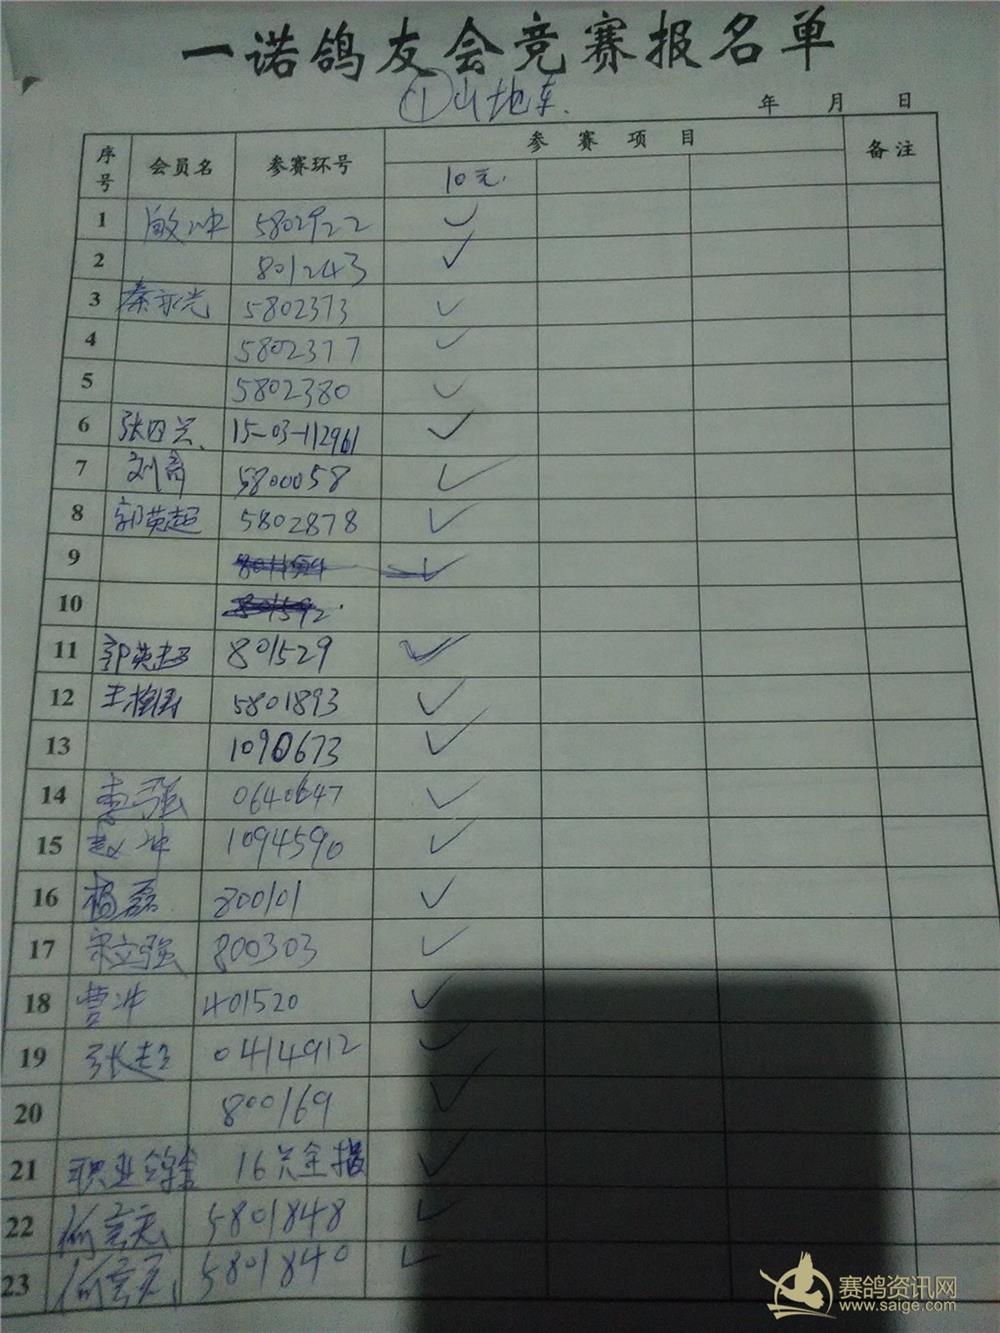 一诺鸽友会竞赛报名单
①山地车.
年 月 日
序号 会员名 参赛环号 参赛项目 备注
10元.
1 敏冲 5802922 ✓
2 801243 ✓
3 秦永光 5802373 ✓
4 5802377 ✓
5 5802380 ✓
6 张四兰 15-03-112961 ✓
7 刘奇 5800058 ✓
8 郭英超 5802878 ✓
9 ✓
10 801592
11 郭英超 801529 ✓
12 王 5801893 ✓
13 1090673 ✓
14 李强 0640647 ✓
15 赵冲 1094590 ✓
16 杨磊 800101 ✓
17 宋立强 800303 ✓
18 曹冲 401520 ✓
19 张超 0414912 ✓
20 800169 ✓
21 职业鸽舍 16只全报 ✓
22 5801848 ✓
23 5801840 ✓
赛鸽资讯网
www.saige.com